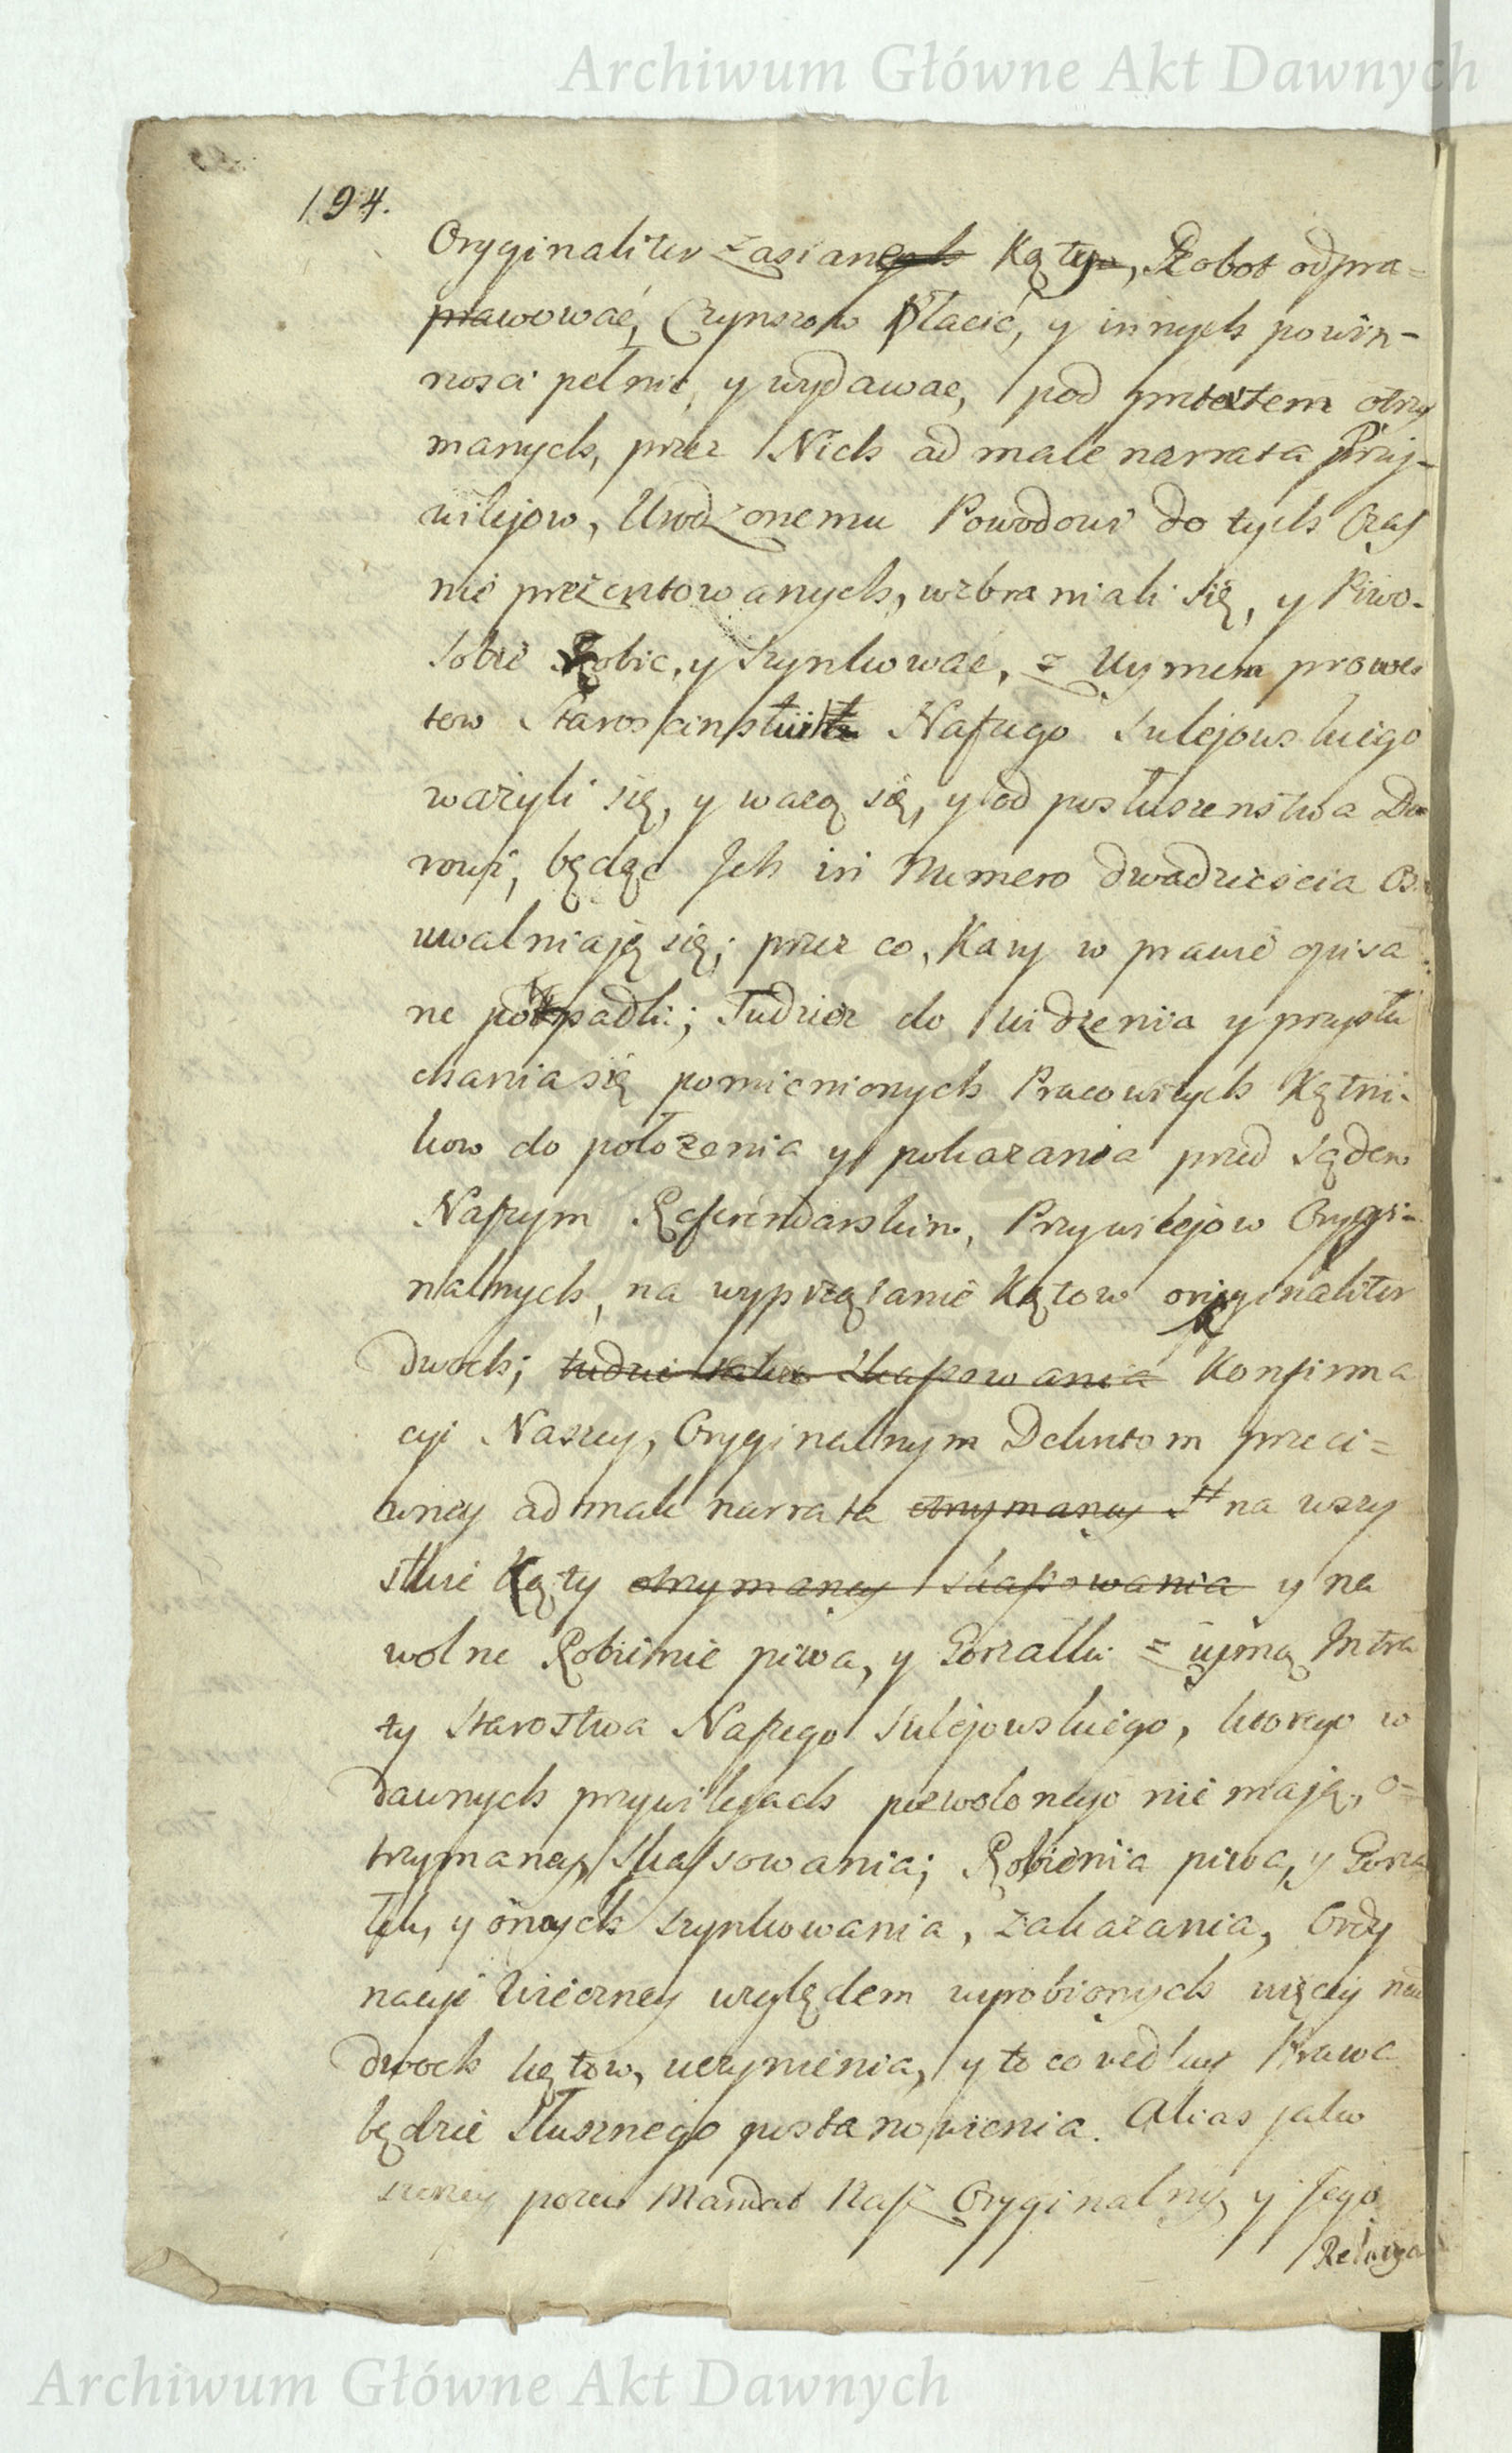 Archiwum Główne Akt Dawnych
194.
Oryginaliter zasianych Kąty, Robot odpra=
prawować, Czynszow Płacić, y innych powin-
nosci pełnić, y wydawac, pod pretextem otrzy
manych, przez Nich ad male narrata Przy-
wilejow, Urodzonemu Powodowi do tych Czas
nie prezentowanych, wzbraniali się, y Piwo-
sobie Robic, y szynkować, z Uymem prowen
tow Staroscinskich Naszego Sulejowskiego
ważyli się, y ważą się, y od posłuszenstwa Dwo
rowi, będąc Jch in Numero dwadziescia
uwalniają się; przez co, Kary w prawie opisa
ne podpadli; Tudziez do widzenia y przysłu
chania się pomienionych Pracowitych Kątni-
kow do położenia y pokazania przed Sądem
Naszym Referendarskim, Przywilejow Orygi-
nalnych, na wyprzątanie Kątow oryginaliter
dwoch; Skassowania Konfirma
cyi Naszey, Oryginalnym Dekretom przeci=
wney ad male narrata otrzymaney na wszy
stkie Kąty otrzymaney skassowania y na
wolne Robienie piwa, y Gorzałki z ujmą Intra
ty Starostwa Naszego Sulejowskiego, ktorego w
dawnych przywilejach pozwolonego nie mają, o=
trzymaney, Skassowania; Robienia piwa, y Gorza
łki, y onych szynkowania, zakazania, Ordy
nacyi Wieczney względem wyrobionych więcej nad
dwoch kątow, uczynienia, y to co według Prawa
będzie słusznego postanowienia. Alias jako
szerzey pozew Mandat Nasz Oryginalny, y Jego
Relacya
Archiwum Główne Akt Dawnych